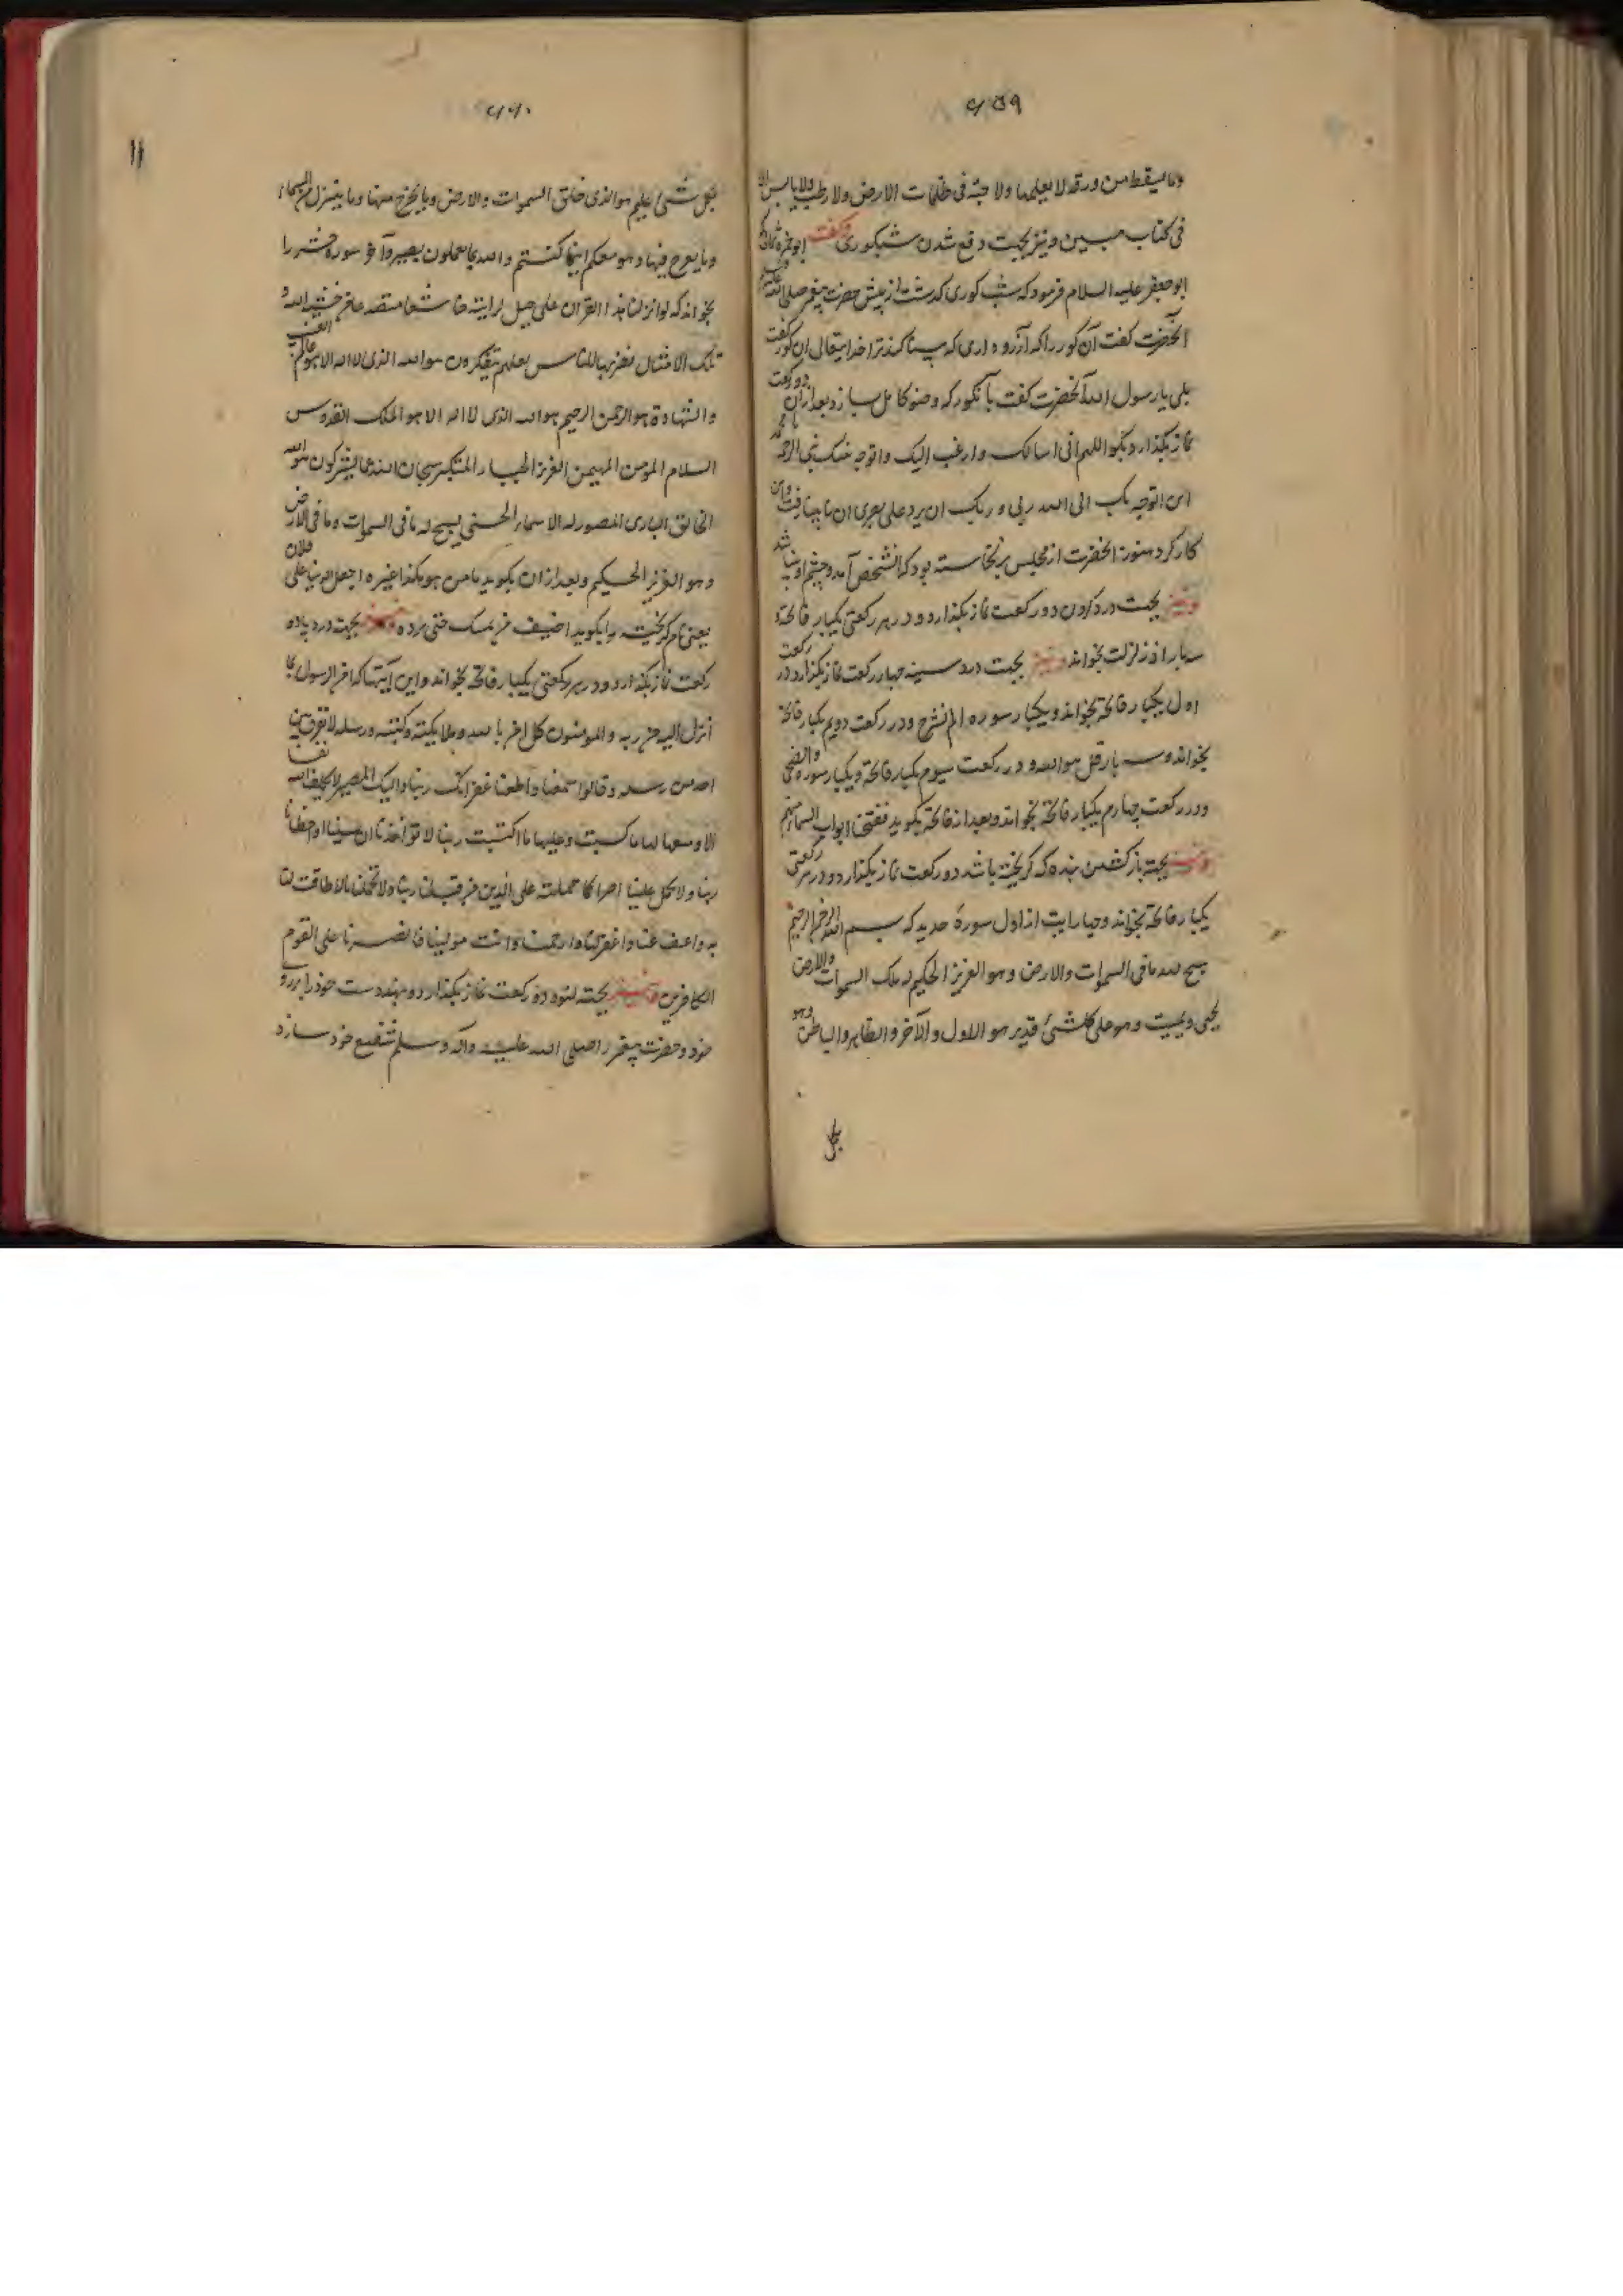 ۶۵۹
وما یسقط من ورقه الا یعلمها ولا حبّة فی ظلمات الارض ولا رطب ولا یابس الا
فی کتاب مبین ونیز بجهت دفع شدن شبکوری وکفت ابوحمزه ثمالی که
ابوجعفر علیه السلام فرمود که شب کوری کذشت از پیش حضرت پیغمبر صلی الله علیه
آنحضرت کفت آن کور را که آرزو داری که بینا کند ترا خدایتعالی آن کور کفت
بلی یا رسول الله آنحضرت کفت بآنکور که وضو کامل سازد بعد ازان دو رکعت
نماز بکذارد وبکو اللهم انی اسالک وارغب الیک واتوجه بنبیک نبی الرحمه یا محمد
انی اتوجه بک الی الله ربی وربک ان یرد علی بصری آن نابینا رفت واین
کار کرد هنوز آنحضرت از مجلس برنخاسته بود که آنشخص آمد وچشم او بینا شد
ونیز بجهت درد کردن دو رکعت نماز بکذارد ودر هر رکعتی یکبار فاتحه
سه بار اذا زلزلت بخواند ونیز بجهت درد سینه چهار رکعت نماز بکذارد در رکعت
اول یکبار فاتحه بخواند ویکبار سوره الم نشرح ودر رکعت دویم یکبار فاتحه
بخواند وسه بار قل هو الله ودر رکعت سیوم یکبار فاتحه ویکبار سوره والضحی
ودر رکعت چهارم یکبار فاتحه بخواند وبعد از فاتحه بکوید ففتحنا ابواب السماء
ونیز بجهته بازکشتن بنده که کریخته باشد دو رکعت نماز بکذارد ودر هر رکعتی
یکبار فاتحه بخواند وچهار ایت از اول سورهٔ حدید که بسم الله الرحمن الرحیم
سبح لله ما فی السموات والارض وهو العزیز الحکیم له ملک السموات والارض
یحیی ویمیت وهو علی کل شئ قدیر هو الاول والآخر والظاهر والباطن وهو
بکل
۶۶۰
بکل شئ علیم هو الذی خلق السموات والارض وما یخرج منها وما ینزل من السماء
وما یعرج فیها وهو معکم اینما کنتم والله بما تعملون بصیر وآخر سوره حشر را
بخواند که لو انزلنا هذا القرآن علی جبل لرایته خاشعا متصدعا من خشیة الله و
تلک الامثال نضربها للناس لعلهم یتفکرون هو الله الذی لا اله الا هو عالم الغیب
والشهادة هو الرحمن الرحیم هو الله الذی لا اله الا هو الملک القدوس
السلام المؤمن المهیمن العزیز الجبار المتکبر سبحان الله عما یشرکون هو الله
الخالق الباری المصور له الاسماء الحسنی یسبح له ما فی السموات وما فی الارض
وهو العزیز الحکیم وبعد ازان بکوید یا من هو هکذا غیره اجعل الدنیا علی فلان
یعنی نام کریخته را بکوید اضیق من مسک حتی برده ونیز بجهت درد پا دو
رکعت نماز بکذارد ودر هر رکعتی یکبار فاتحه بخواند واین آیتها که آمن الرسول بما
انزل الیه من ربه والمومنون کل آمن بالله وملایکته وکتبه ورسله لا نفرق بین
احد من رسله وقالوا سمعنا واطعنا غفرانک ربنا والیک المصیر لا یکلف الله نفسا
الا وسعها لها ما کسبت وعلیها ما اکتسبت ربنا لا تؤاخذنا ان نسینا او اخطانا
ربنا ولا تحمل علینا اصرا کما حملته علی الذین من قبلنا ربنا ولا تحملنا ما لا طاقت لنا
به واعف عنا واغفر لنا وارحمنا وانت مولینا فانصرنا علی القوم
الکافرین ونیز بجهته دو رکعت نماز بکذارد ونهد دست خود را بر روی
خود وحضرت پیغمبر را صلی الله علیه وآله وسلم شفیع خود سازد